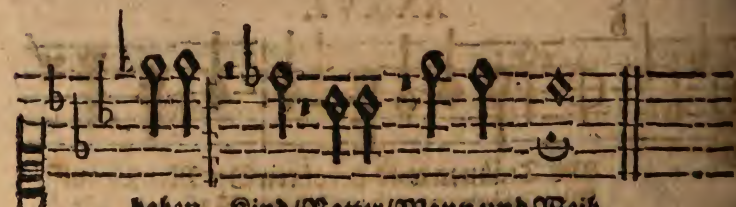 haben / Kind / Vatter / Mann und Weib